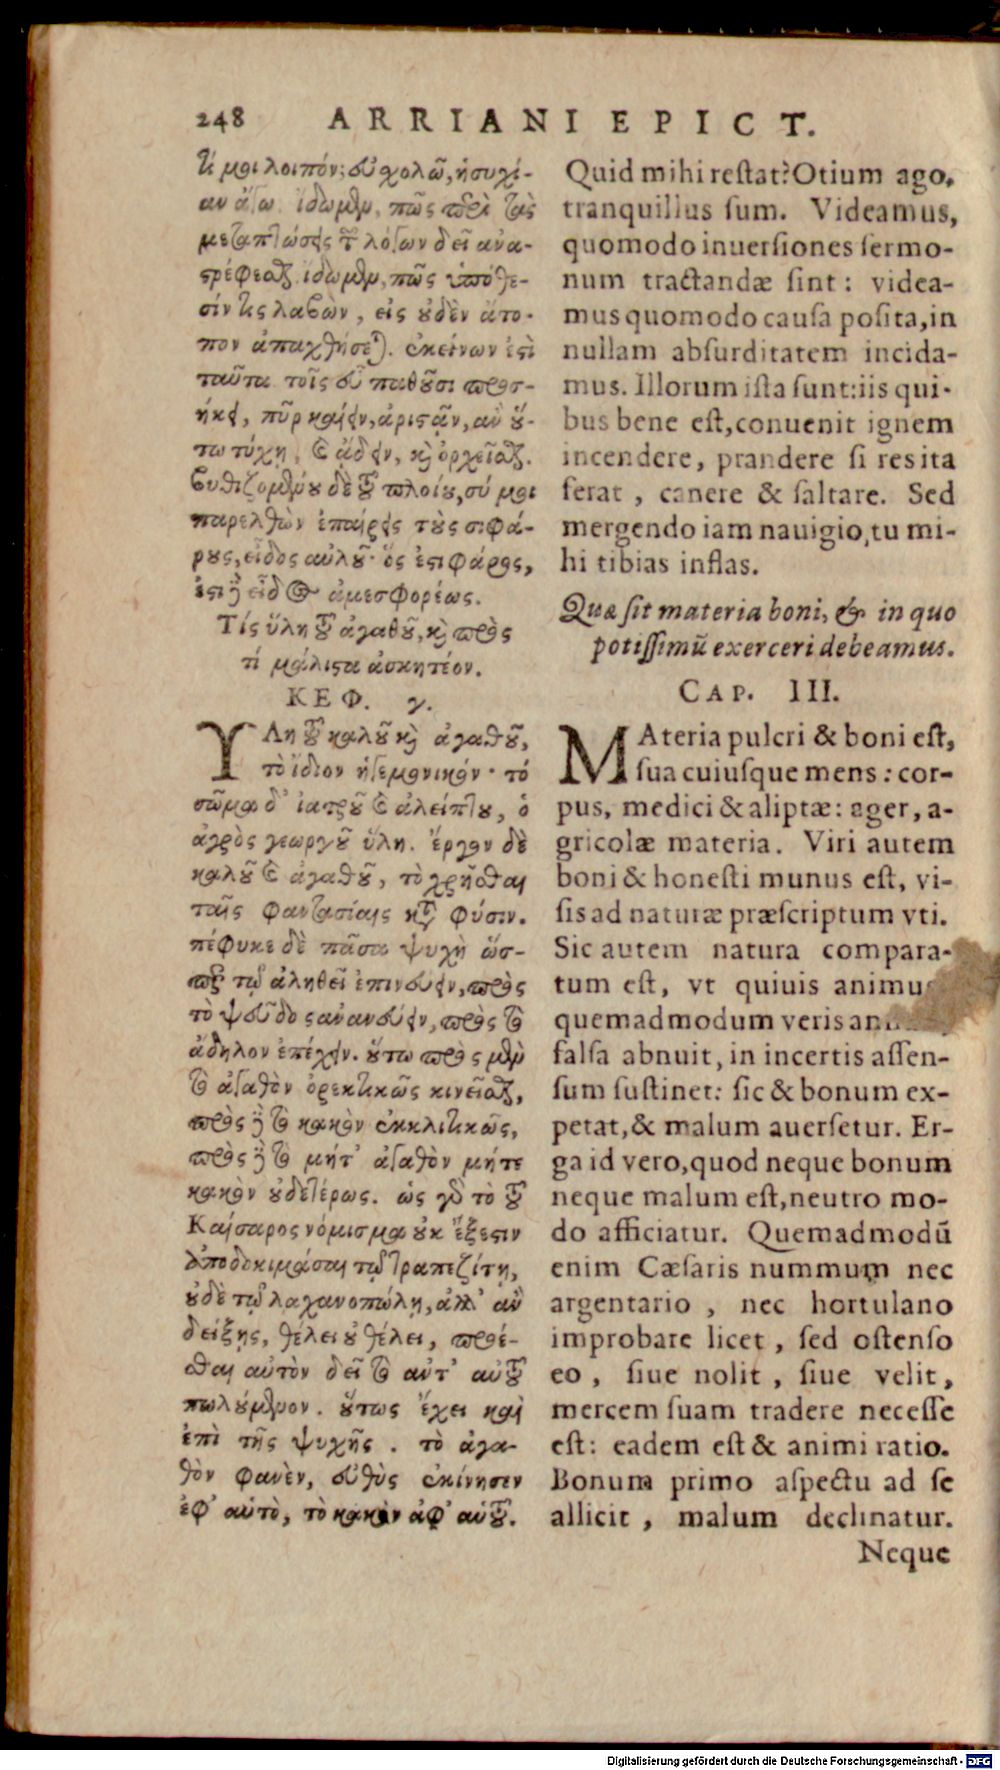 248 ARRIANI EPICT.
τί μοι λοιπόν; εὐσχολῶ, ἡσυχί-
αν ἄγω. ἴδωμεν, πῶς περὶ τὰς
μεταπτώσεις τῶν λόγων δεῖ ἀνα-
στρέφεσθαι. ἴδωμεν, πῶς ὑπόθε-
σίν τις λαβὼν, εἰς οὐδὲν ἄτο-
πον ἀπαχθήσεται. ἐκείνων ἐστὶ
ταῦτα. τοῖς εὖ παθοῦσι προσ-
ήκει, πῦρ καίειν, ἀριστᾷν, ἂν οὕ-
τω τύχῃ, καὶ ᾄδειν, καὶ ὀρχεῖσθαι.
βυθιζομένου δὲ τοῦ πλοίου, σύ μοι
παρελθὼν ἐπαίρεις τοὺς σιφά-
ρους, εἶδος αὐλοῦ· ὅς ἐστι φάρος,
ἐστι δὲ εἶδος ἀμεσφορέως.
Τίς ὕλη τοῦ ἀγαθοῦ, καὶ πρὸς
τί μάλιστα ἀσκητέον.
ΚΕΦ. γ.
ΥΛη τοῦ καλοῦ καὶ ἀγαθοῦ,
τὸ ἴδιον ἡγεμονικόν· τό
σῶμα δ' ἰατροῦ καὶ ἀλείπτου, ὁ
ἀγρὸς γεωργοῦ ὕλη. ἔργον δὲ
καλοῦ καὶ ἀγαθοῦ, τὸ χρῆσθαι
ταῖς φαντασίαις κατὰ φύσιν.
πέφυκε δὲ πᾶσα ψυχὴ ὥσ-
περ τῷ ἀληθεῖ ἐπινεύειν, πρὸς
τὸ ψεῦδος ἀνανεύειν, πρὸς τὸ
ἄδηλον ἐπέχειν. οὕτω πρὸς μὲν
τὸ ἀγαθὸν ὀρεκτικῶς κινεῖσθαι,
πρὸς δὲ τὸ κακὸν ἐκκλιτικῶς,
πρὸς δὲ τὸ μήτ' ἀγαθὸν μήτε
κακὸν οὐδετέρως. ὡς γὰρ τὸ τοῦ
Καίσαρος νόμισμα οὐκ ἔξεστιν
ἀποδοκιμάσαι τῷ τραπεζίτῃ,
οὐδὲ τῷ λαχανοπώλῃ, ἀλλ' ἂν
δείξῃς, θέλει οὐ θέλει, προέ-
σθαι αὐτὸν δεῖ τὸ αὐτ' αὐτοῦ
πωλούμενον. οὕτως ἔχει καὶ
ἐπὶ τῆς ψυχῆς. τὸ ἀγα-
θὸν φανὲν, εὐθὺς ἐκίνησεν
ἐφ' αὑτὸ, τὸ κακὸν ἀφ' αὑτοῦ.
Quid mihi restat? Otium ago,
tranquillus sum. Videamus,
quomodo inuersiones sermo-
num tractandæ sint: videa-
mus quomodo causa posita, in
nullam absurditatem incida-
mus. Illorum ista sunt: iis qui-
bus bene est, conuenit ignem
incendere, prandere si res ita
ferat, canere & saltare. Sed
mergendo iam nauigio, tu mi-
hi tibias inflas.
Quæ sit materia boni, & in quo
potissimũ exerceri debeamus.
CAP. III.
MAteria pulcri & boni est,
sua cuiusque mens: cor-
pus, medici & aliptæ: ager, a-
gricolæ materia. Viri autem
boni & honesti munus est, vi-
sis ad naturæ præscriptum vti.
Sic autem natura compara-
tum est, vt quiuis
quemadmodum veris
falsa abnuit, in incertis assen-
sum sustinet: sic & bonum ex-
petat, & malum auersetur. Er-
ga id vero, quod neque bonum
neque malum est, neutro mo-
do afficiatur. Quemadmodũ
enim Cæsaris nummum nec
argentario, nec hortulano
improbare licet, sed ostenso
eo, siue nolit, siue velit,
mercem suam tradere necesse
est: eadem est & animi ratio.
Bonum primo aspectu ad se
allicit, malum declinatur.
Neque
Digitalisierung gefördert durch die Deutsche Forschungsgemeinschaft - DFG